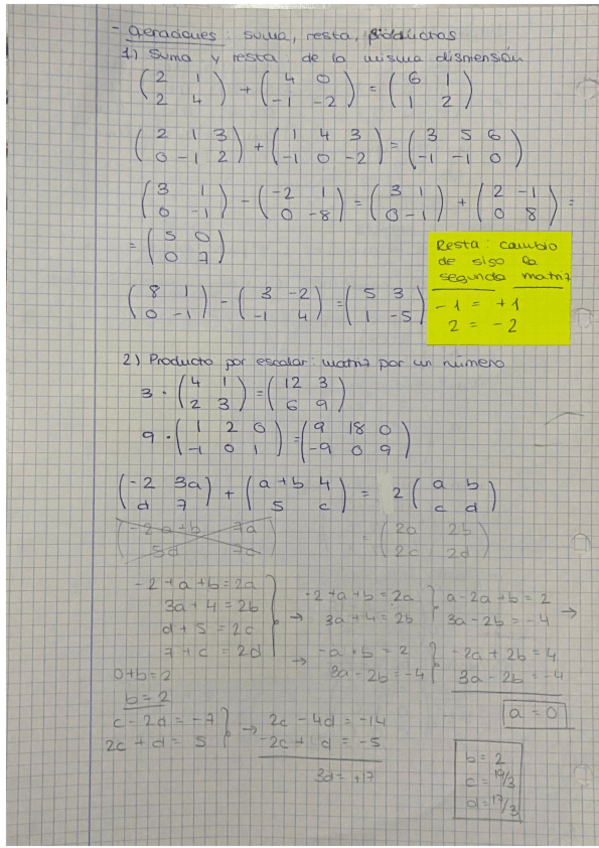 - Operaciones: suma, resta, productos
1) Suma y resta: de la misma dismensión
(2 1 / 2 4) + (4 0 / -1 -2) = (6 1 / 1 2)
(2 1 3 / 0 -1 2) + (1 4 3 / -1 0 -2) = (3 5 6 / -1 -1 0)
(3 1 / 0 -1) - (-2 1 / 0 -8) = (3 1 / 0 -1) + (2 -1 / 0 8) =
= (5 0 / 0 7)
Resta: cambio
de sigo la
segunda matriz
-1 = +1
2 = -2
(8 1 / 0 -1) - (3 -2 / -1 4) = (5 3 / 1 -5)
2) Producto por escalar: matriz por un número
3 · (4 1 / 2 3) = (12 3 / 6 9)
9 · (1 2 0 / -1 0 1) = (9 18 0 / -9 0 9)
(-2 3a / d 7) + (a+b 4 / 5 c) = 2 (a b / c d)
(-2a+b 7a / 5d 7c) = (2a 2b / 2c 2d)
-2+a+b=2a
3a+4=2b
d+5=2c
7+c=2d
→ -2+a+b=2a
3a+4=2b
a-2a+b=2
3a-2b=-4 →
→ -a+b=2
3a-2b=-4
-2a+2b=4
3a-2b=-4
a=0
0+b=2
b=2
c-2d=-7
2c+d=5
→ 2c-4d=-14
-2c+d=-5
3d=+17
b=2
c=19/3
d=17/3